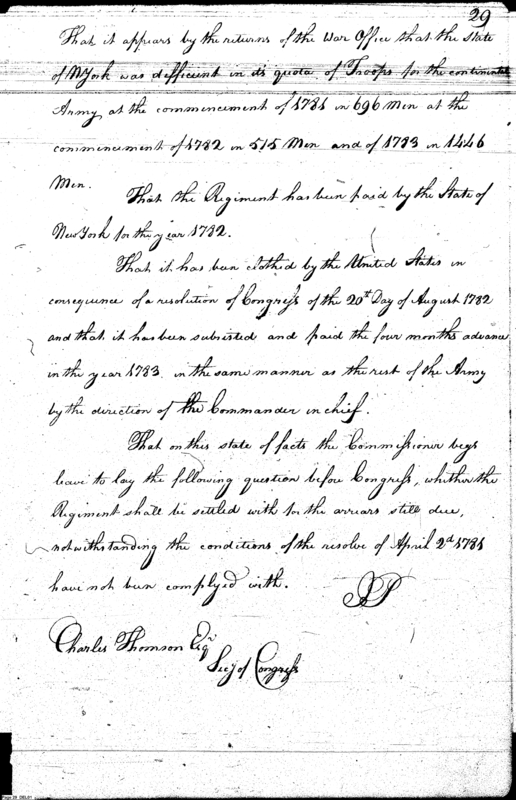 29
That it appears by the returns of the War Office that the State
of NYork was defficient in its quota of Troops for the continental
Army at the commencement of 1781 in 696 Men at the
commencement of 1782 in 515 Men and of 1783 in 1446
Men.
That the Regiment has been paid by the State of
New York for the year 1782.
That it has been clothed by the United States in
consequence of a resolution of Congress of the 20th Day of August 1782
and that it has been subsisted and paid the four months advance
in the year 1783. in the same manner as the rest of the Army
by the direction of the Commander in chief.
That on this state of facts the Commissioner begs
leave to lay the following question before Congress, whither the
Regiment shall be settled with for the arrears still due,
notwithstanding the conditions of the resolve of April 2d 1781
have not been complyed with.
Charles Thomson Esqr
Secy of Congress